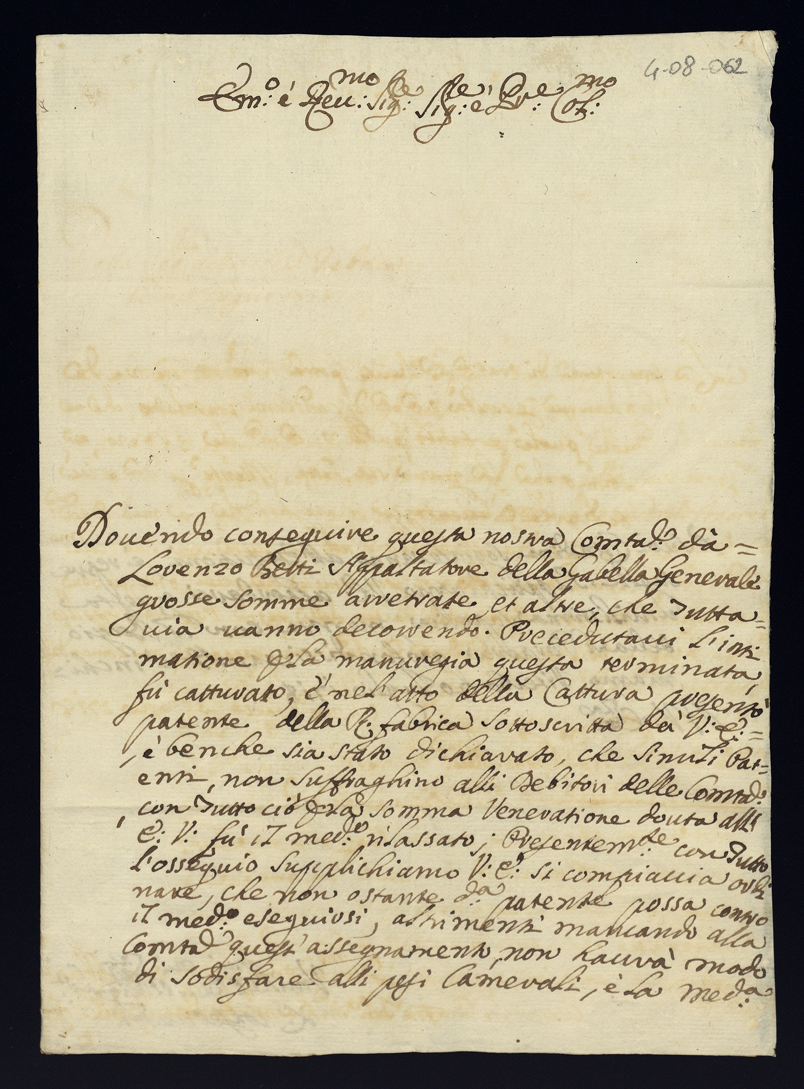 4-08-062
Em.o é Reu.mo Sig.re Sig.re é Pre Col.mo
Douendo conseguire questa nostra Comta.d dà=
Lorenzo Betti Appaltatore della Gabella Generale
grosse somme arretrate, et altre, che tutta=
uia uanno decorrendo. Precedutaui l'inti
matione p la manuregia questa terminata
fù catturato, é nel'atto della Cattura presentò
patente della R. fabrica sottoscritta dà V: E:=
, è benche sia stato dichiarato, che simili Pat=
enti, non suffraghino alli Debitori delle Comta.d
, con tutto ciò p la somma Veneratione douta all'
E: V: fù il med.o rilassato; Presentem.te con tutto
l'ossequio supplichiamo V: E: si compiaccia ordi
nare, che non ostante d.a patente possa contro
il med.o eseguirsi, altrimenti mancando alla
Comta.d questi assegnamenti, non haurà modo
di sodisfare alli pesi Camerali, é la med.a